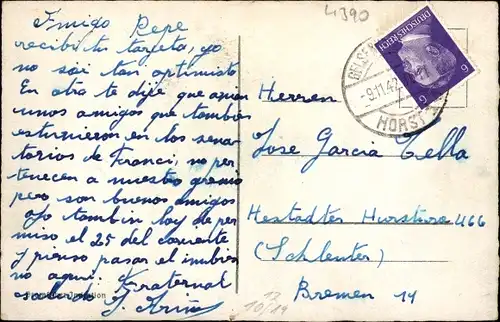 4390
Amigo Pepe
recibi tu tarjeta, yo
no soi tan optimisto
En otra te dije que avian
unos amigos que tambien
estuvieron en los sana
torios de Franci, no per
tenecen a nuestro gremio
pero son buenos amigos
yo tambin loy de per
miso el 25 del corriente
y pienso pasar el imbier
no aqui. Fraternal
saludo
DEUTSCHES REICH
6
6
GELSE
-9.11.42
HORST
Herren
Jose Garcia Tella
Hestadter Hurstere 466
(Schleuter)
Bremen 14
12
10/14